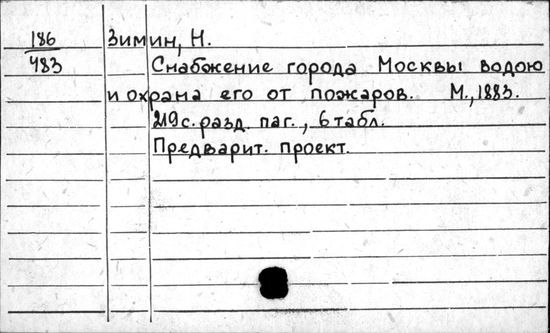 186 Зимин, Н.
483 Снабжение города Москвы водою
и охрана его от пожаров. М., 1883.
219 с. разд. паг., 6 табл.
Предварит. проект.